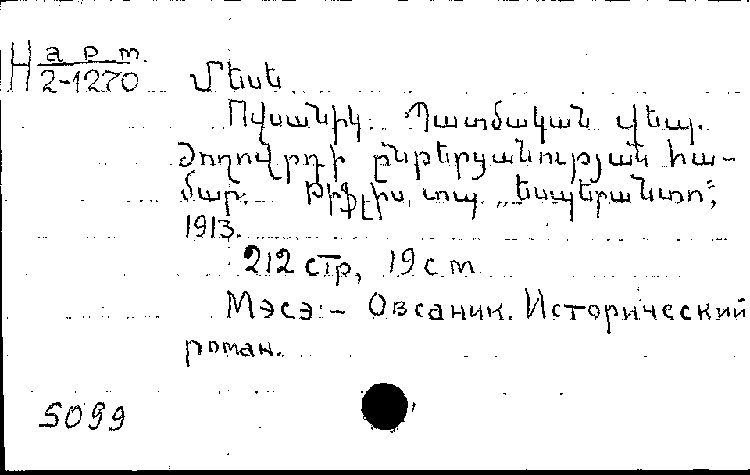 H арт.
2-1270
Մեսե
Ովսանիկ: Պատմական վեպ.
Ժողովրդի ընթերցանության հա-
մար: Թիֆլիս, տպ. „Էսպերանտո",
1913.
212 стр, 19 см
Мэсэ:- Овсаник. Исторический
роман.
5099